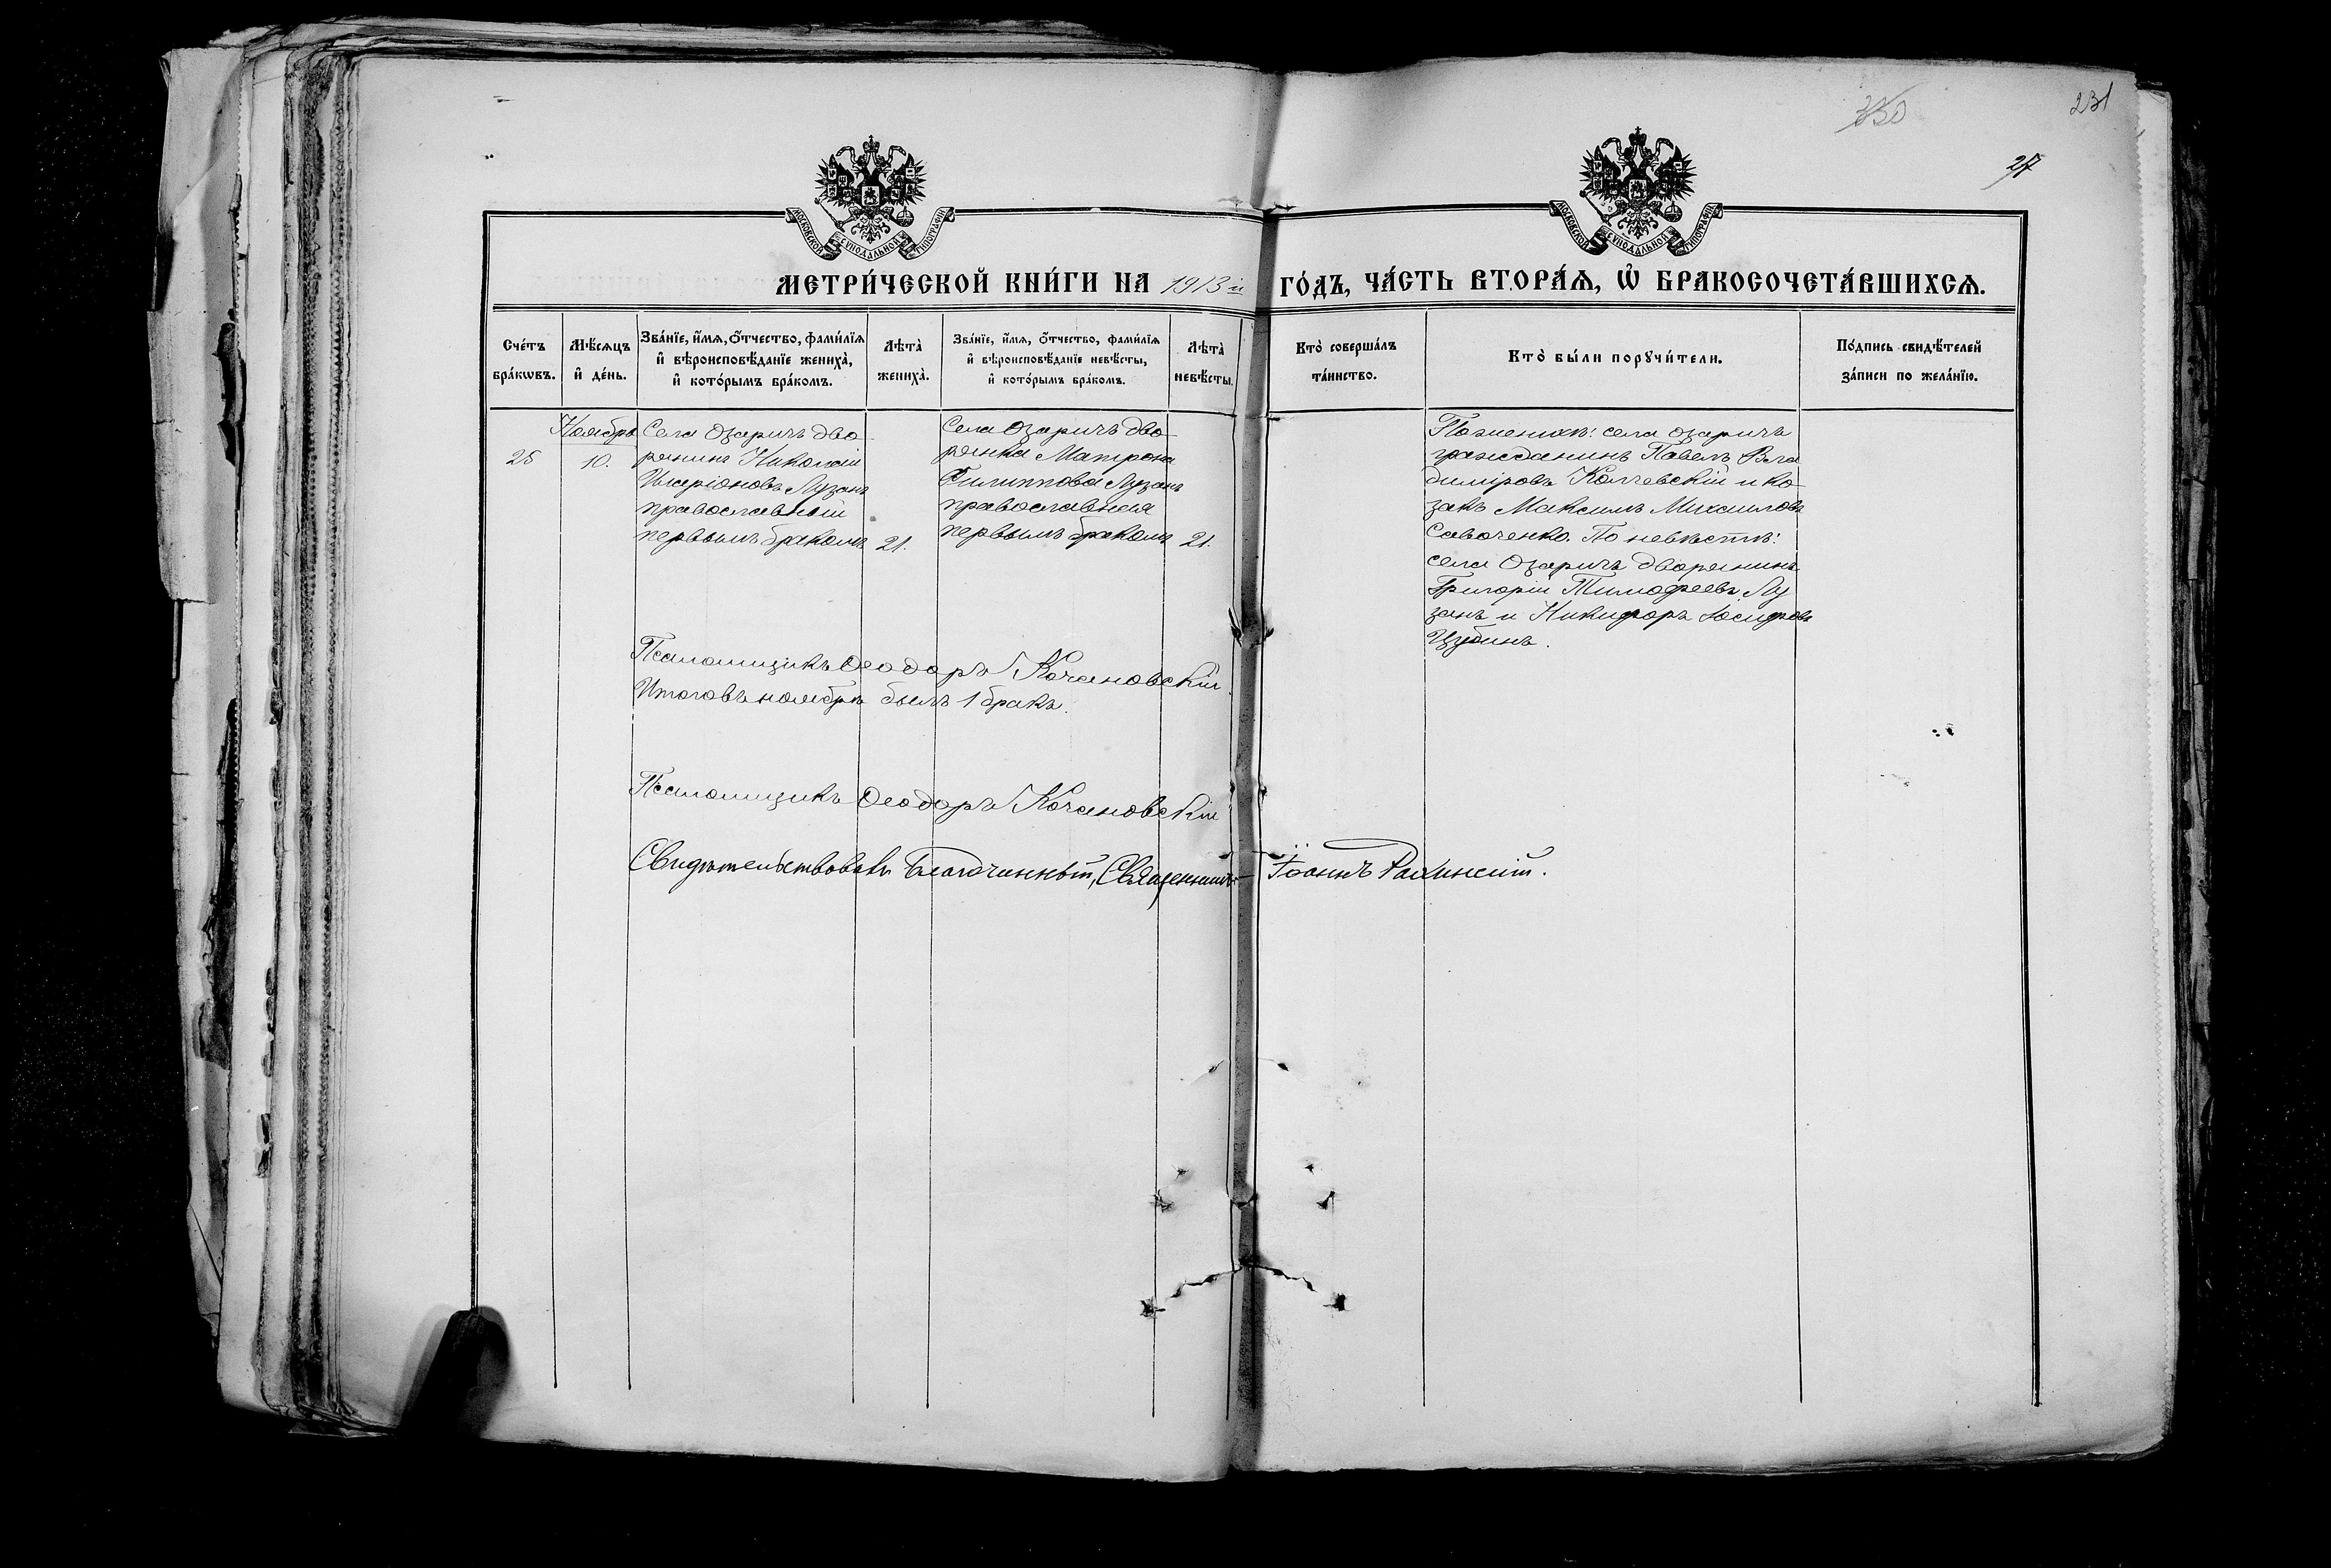 231
27
МОСКОВСКОЙ СѴНОДАЛЬНОЙ ТИПОГРАФІИ
МОСКОВСКОЙ СѴНОДАЛЬНОЙ ТИПОГРАФІИ
МЕТРИ́ЧЕСКОЙ КНИ́ГИ НА 1913 й ГО́ДЪ, ЧА́СТЬ ВТОРА́Ѧ, Ѡ҆ БРАКОСОЧЕТА́ВШИХСѦ.
Сче́тъ
бра́кѡвъ.
Мѣ́сѧцъ
и҆ де́нь.
Зва́нїе, и҆́мѧ, ѻ҆́тчество, фами́лїѧ
и҆ вѣроисповѣ́данїе жениха̀,
и҆ кото́рымъ бра́комъ.
Лѣта̀
жениха̀.
Зва́нїе, и҆́мѧ, ѻ҆́тчество, фами́лїѧ
и҆ вѣроисповѣ́данїе невѣ́сты,
и҆ кото́рымъ бра́комъ.
Лѣта̀
невѣ́сты.
Кто̀ соверша́лъ
та́инство.
Кто̀ бы́ли порꙋчи́тели.
По́дпись свидѣ́телей
за́писи по жела́нїю.
25
Ноябрь
10.
Села Озаричъ дво-
рянинъ Николай
Иларіоновъ Лузанъ
православный
первымъ бракомъ
21.
Села Озаричъ дво-
рянка Матрона
Филиппова Лузанъ
православная
первымъ бракомъ
21.
По женихѣ: села Озаричъ
гражданинъ Павелъ Вла
диміровъ Колчевскій и ко-
закъ Максимъ Михаиловъ
Савоченко. По невѣстѣ:
села Озаричъ дворянинъ
Григорій Тимофеевъ Лу
занъ и Никифоръ
Псаломщикъ Ѳеодоръ Кочановскій.
Итого въ ноябрѣ былъ 1 бракъ.
Псаломщикъ Ѳеодоръ Кочановскій
Свидѣтельствовалъ Благочинный, Священникъ Іоаннъ